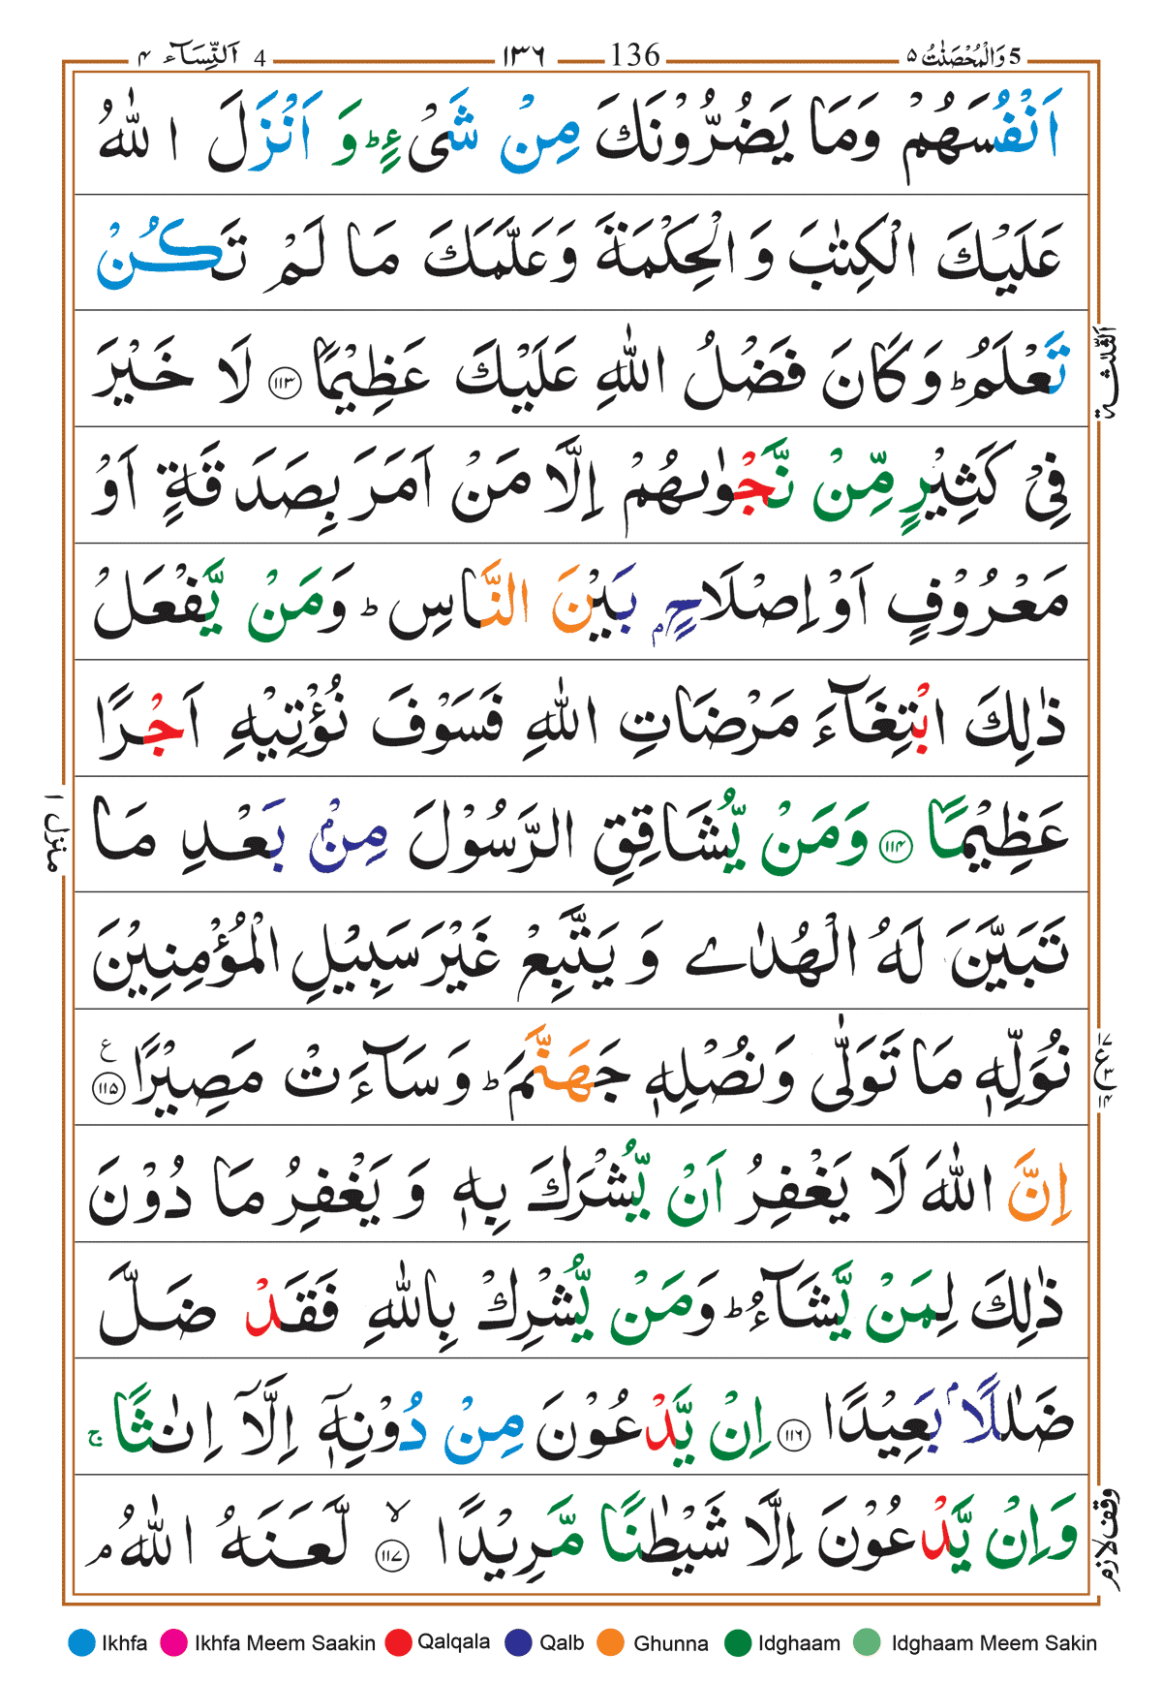 5 وَالْمُحْصَنٰتُ ۵ 136 ۱۳۶ 4 اَلنِّسَآء ۴
اَنْفُسَهُمْ وَمَا يَضُرُّوْنَكَ مِنْ شَىْءٍ ؕ وَ اَنْزَلَ اللّٰهُ
عَلَيْكَ الْكِتٰبَ وَالْحِكْمَةَ وَعَلَّمَكَ مَا لَمْ تَكُنْ
تَعْلَمُ ؕ وَكَانَ فَضْلُ اللّٰهِ عَلَيْكَ عَظِيْمًا ﴿۱۱۳﴾ لَا خَيْرَ
اَلثّٰلثة
فِىْ كَثِيْرٍ مِّنْ نَّجْوٰىهُمْ اِلَّا مَنْ اَمَرَ بِصَدَقَةٍ اَوْ
مَعْرُوْفٍ اَوْ اِصْلَاحٍۭ بَيْنَ النَّاسِ ؕ وَمَنْ يَّفْعَلْ
ذٰلِكَ ابْتِغَآءَ مَرْضَاتِ اللّٰهِ فَسَوْفَ نُؤْتِيْهِ اَجْرًا
عَظِيْمًا ﴿۱۱۴﴾ وَمَنْ يُّشَاقِقِ الرَّسُوْلَ مِنْۢ بَعْدِ مَا
منزل ۱
تَبَيَّنَ لَهُ الْهُدٰى وَ يَتَّبِعْ غَيْرَ سَبِيْلِ الْمُؤْمِنِيْنَ
نُوَلِّهٖ مَا تَوَلّٰى وَنُصْلِهٖ جَهَنَّمَ ؕ وَسَآءَتْ مَصِيْرًا ﴿۱۱۵﴾ ع
۱۷ ع ۳ ۱۴
اِنَّ اللّٰهَ لَا يَغْفِرُ اَنْ يُّشْرَكَ بِهٖ وَ يَغْفِرُ مَا دُوْنَ
ذٰلِكَ لِمَنْ يَّشَآءُ ؕ وَمَنْ يُّشْرِكْ بِاللّٰهِ فَقَدْ ضَلَّ
ضَلٰلًاۢ بَعِيْدًا ﴿۱۱۶﴾ اِنْ يَّدْعُوْنَ مِنْ دُوْنِهٖۤ اِلَّاۤ اِنٰثًا ۚ
وَاِنْ يَّدْعُوْنَ اِلَّا شَيْطٰنًا مَّرِيْدًا ﴿۱۱۷﴾ ۙ لَّعَنَهُ اللّٰهُ ۘ
وقف لازم
Ikhfa Ikhfa Meem Saakin Qalqala Qalb Ghunna Idghaam Idghaam Meem Sakin